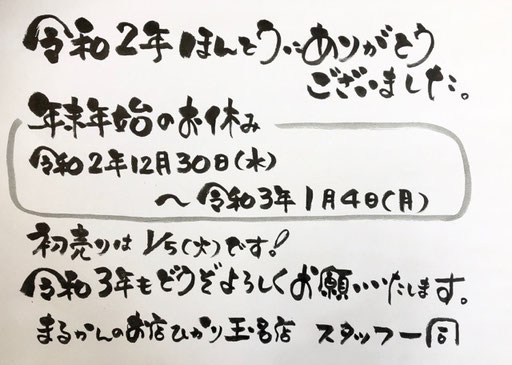 令和2年ほんとうにありがとう
ございました。
年末年始のお休み
令和2年12月30日(水)
～令和3年1月4日(月)
初売りは1/5(火)です!
令和3年もどうぞよろしくお願いいたします。
まるかんのお店ひかり玉名店 スタッフ一同